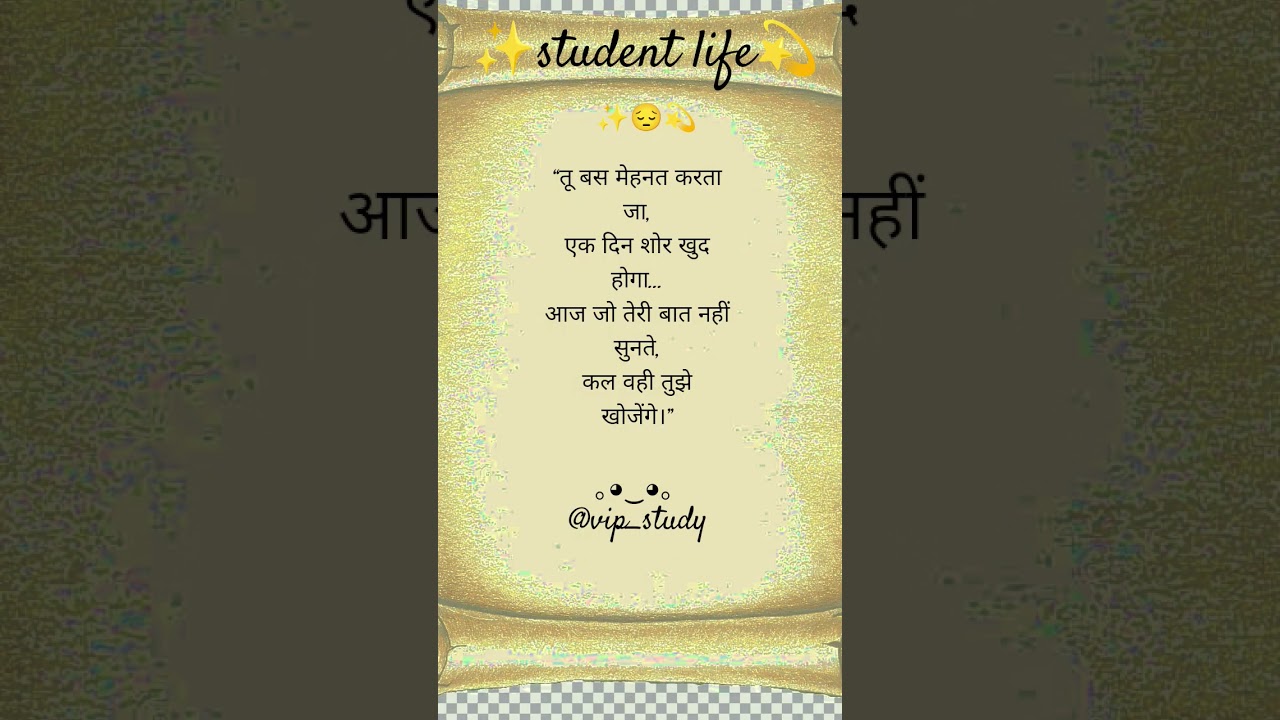 ✨student life💫
✨😔💫
“तू बस मेहनत करता
जा,
एक दिन शोर खुद
होगा...
आज जो तेरी बात नहीं
सुनते,
कल वही तुझे
खोजेंगे।”
@vip_study
आज
नहीं